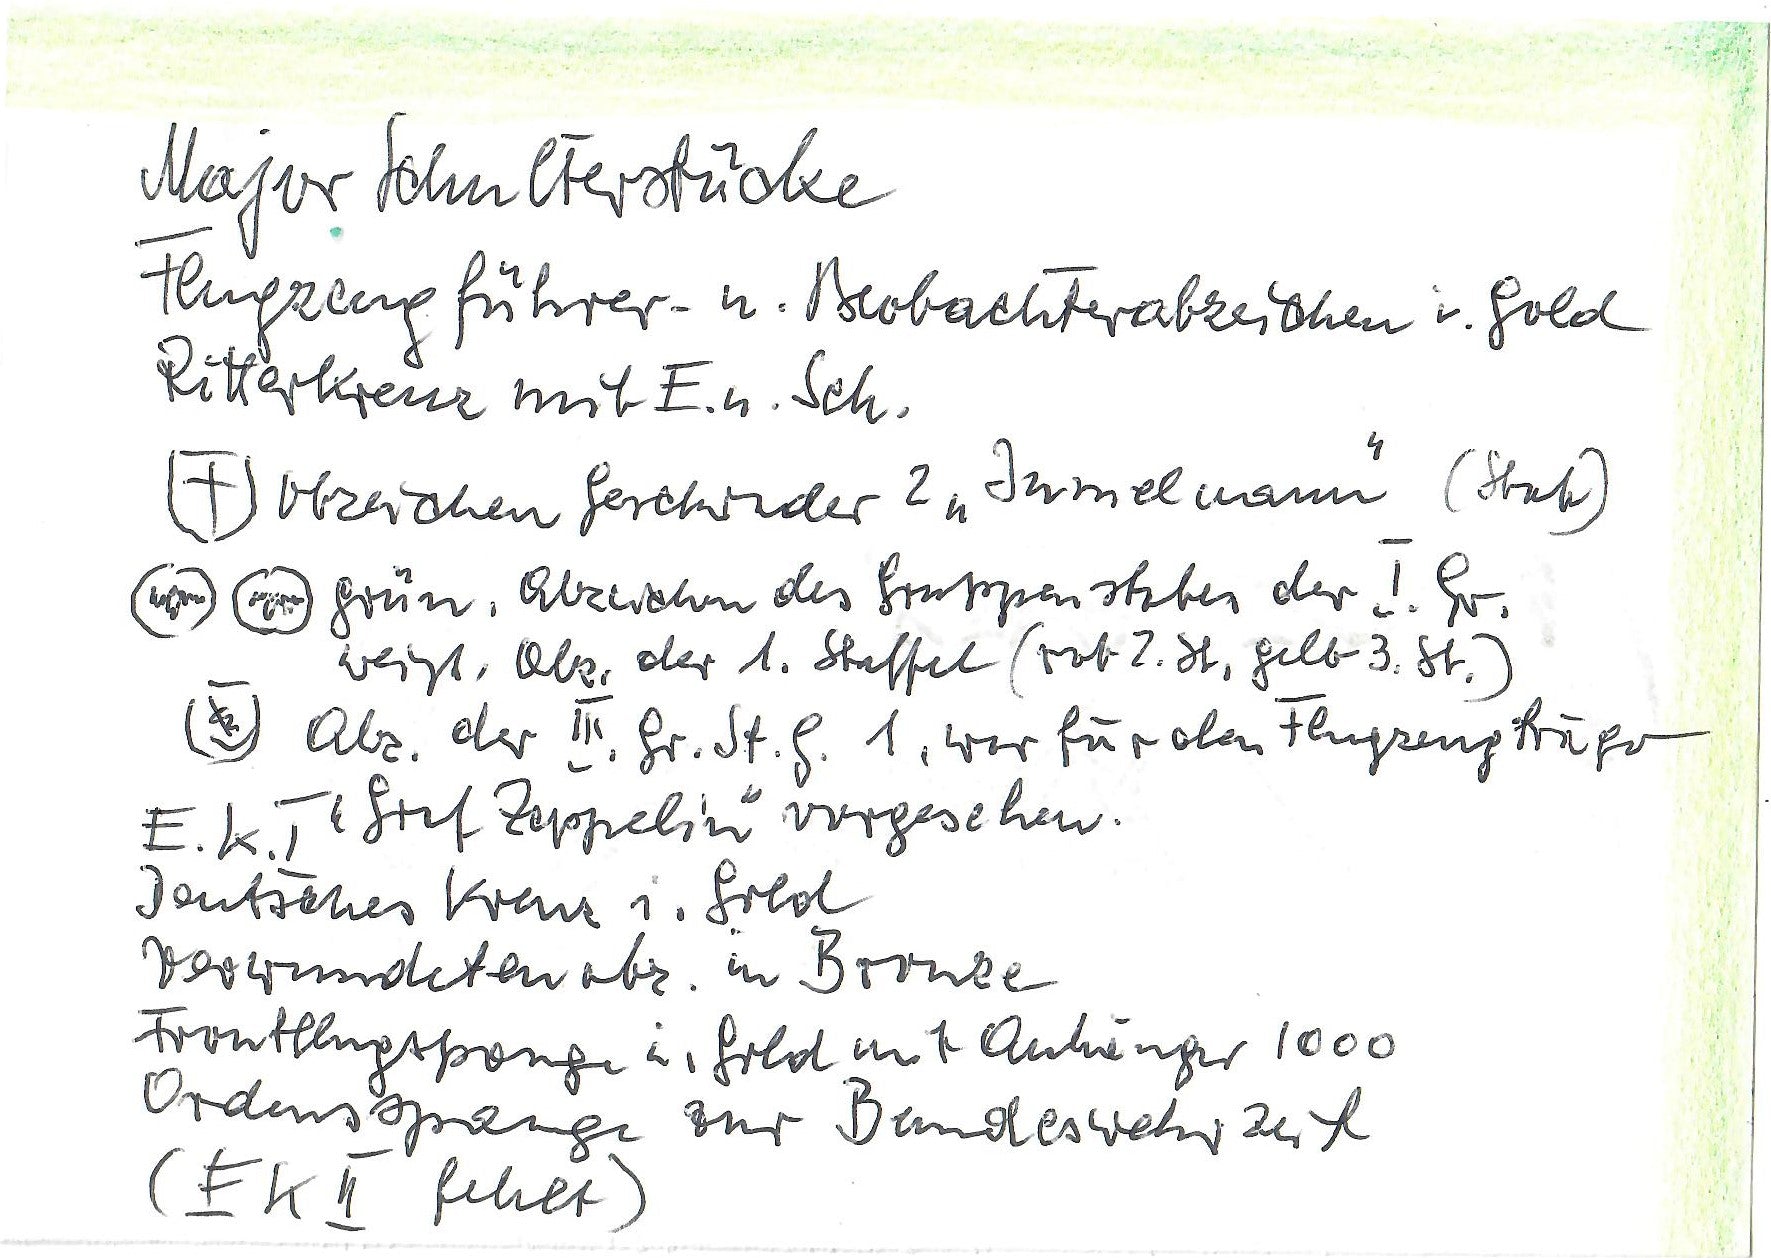 Major Schulterstücke
Flugzeugführer- u. Beobachterabzeichen i. Gold
Ritterkreuz mit E. u. Sch.
Abzeichen Geschwader 2 „Immelmann" (Stab)
grün, Abzeichen des Gruppenstabes der I. Gr.
weiß, Abz. der 1. Staffel (rot 2. St, gelb 3. St.)
Abz. der III. Gr. St. G. 1, war für den Flugzeugträger
E.K.I "Graf Zeppelin" vorgesehen.
Deutsches Kreuz i. Gold
Verwundetenabz. in Bronze
Frontflugspange i. Gold mit Anhänger 1000
Ordensspange zur Bundeswehrzeit
(EK II fehlt)